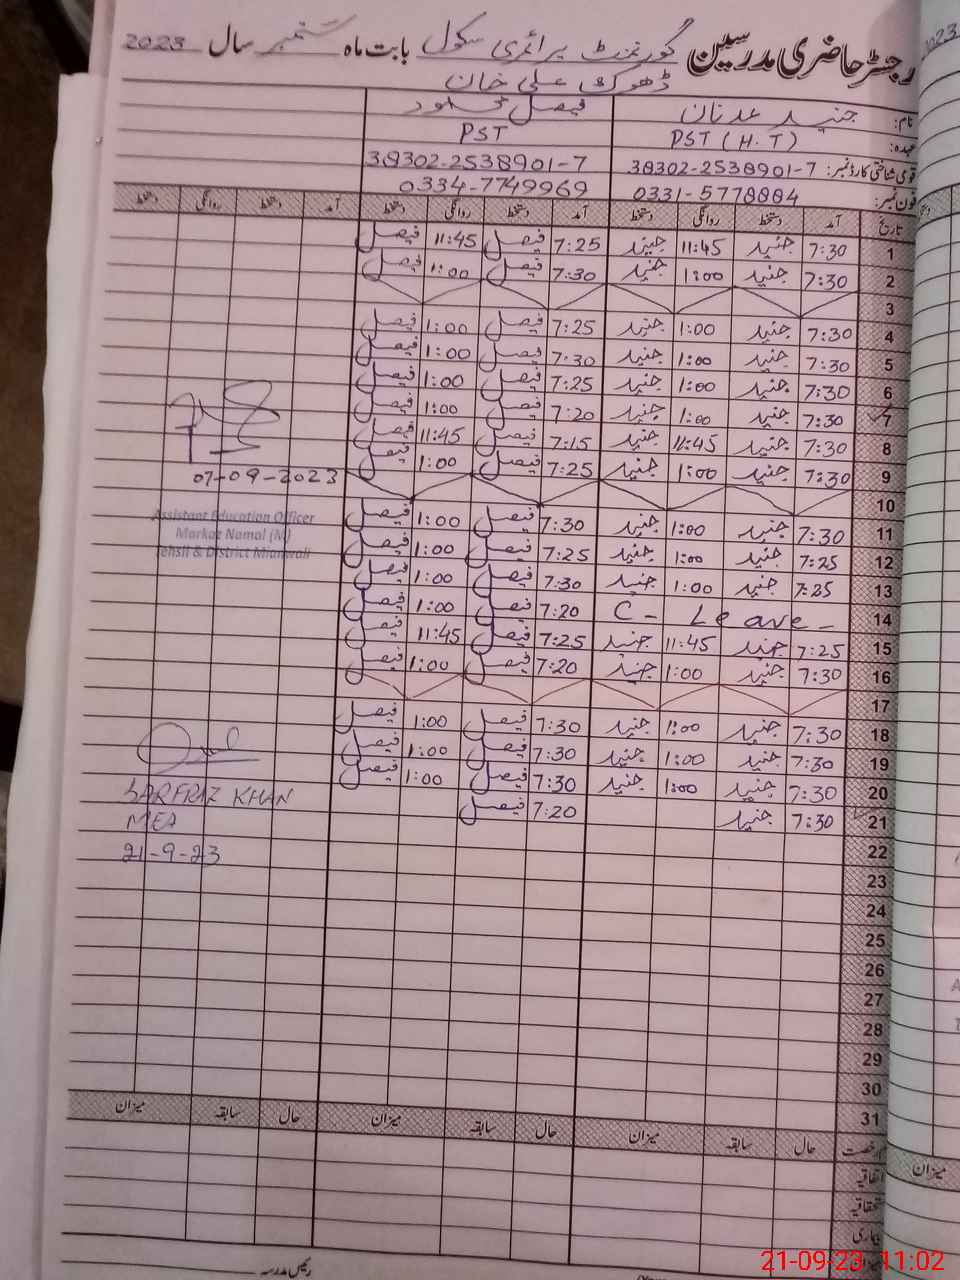 رجسٹر حاضری مدرسین گورنمنٹ پرائمری سکول بابت ماہ ستمبر سال 2023
ڈھوک علی خان
نام: جنید عدنان فیصل محمود
عہدہ: PST (H.T) PST
قومی شناختی کارڈ نمبر: 38302-2538901-7 38302-2538901-7
فون نمبر: 0331-5778884 0334-7749969
تاریخ آمد دستخط روانگی دستخط آمد دستخط روانگی دستخط آمد دستخط روانگی دستخط
1 7:30 جنید 11:45 جنید 7:25 فیصل 11:45 فیصل
2 7:30 جنید 1:00 جنید 7:30 فیصل 1:00 فیصل
3
4 7:30 جنید 1:00 جنید 7:25 فیصل 1:00 فیصل
5 7:30 جنید 1:00 جنید 7:30 فیصل 1:00 فیصل
6 7:30 جنید 1:00 جنید 7:25 فیصل 1:00 فیصل
7 7:30 جنید 1:00 جنید 7:20 فیصل 1:00 فیصل
8 7:30 جنید 11:45 جنید 7:15 فیصل 11:45 فیصل
9 7:30 جنید 1:00 جنید 7:25 فیصل 1:00 فیصل
07-09-2023
10
Assistant Education Officer
Markaz Namal (M)
Tehsil & District Mianwali
11 7:30 جنید 1:00 جنید 7:30 فیصل 1:00 فیصل
12 7:25 جنید 1:00 جنید 7:25 فیصل 1:00 فیصل
13 7:25 جنید 1:00 جنید 7:30 فیصل 1:00 فیصل
14 C- Leave - 7:20 فیصل 1:00 فیصل
15 7:25 جنید 11:45 جنید 7:25 فیصل 11:45 فیصل
16 7:30 جنید 1:00 جنید 7:20 فیصل 1:00 فیصل
17
18 7:30 جنید 1:00 جنید 7:30 فیصل 1:00 فیصل
19 7:30 جنید 1:00 جنید 7:30 فیصل 1:00 فیصل
20 7:30 جنید 1:00 جنید 7:30 فیصل 1:00 فیصل
21 7:30 جنید 7:20 فیصل
SARFRAZ KHAN
MEA
21-9-23
22
23
24
25
26
27
28
29
30
31
رخصت حال سابقہ میزان حال سابقہ میزان حال سابقہ میزان
اتفاقیہ
استحقاقیہ
بیماری
رئیس مدرسہ
میزان
2023
21-09-23 11:02